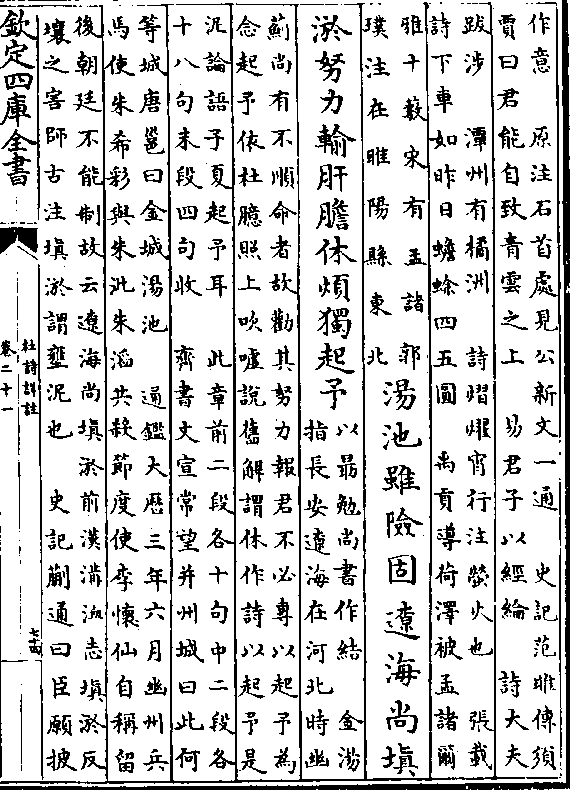 作意 原注石首處見公新文一通 史記范雎傳須
賈曰君能自致青雲之上 易君子以經綸 詩大夫
跋涉 潭州有橘洲 詩熠燿宵行注螢火也 張載
詩下車如昨日蟾蜍四五圓 禹貢導荷澤被孟諸爾
雅十藪宋有孟諸郭
璞注在睢陽縣東北
湯池雖險固遼海尚塡
淤努力輸肝膽休煩獨起予
以勗勉尚書作結 金湯
指長安遼海在河北時幽
薊尚有不順命者故勸其努力報君不必專以起予為
念起予依杜臆照上吹噓說舊解謂休作詩以起予是
泥論語子夏起予耳 此章前二段各十句中二段各
十八句末段四句收 齊書文宣常望并州城曰此何
等城唐邕曰金城湯池 通鑑大歷三年六月幽州兵
馬使朱希彩與朱泚朱滔共殺節度使李懷仙自稱留
後朝廷不能制故云遼海尚塡淤前漢溝洫志塡淤反
壤之害師古注塡淤謂壅泥也 史記蒯通曰臣願披
欽定四庫全書
杜詩詳註
卷二十一
七十四